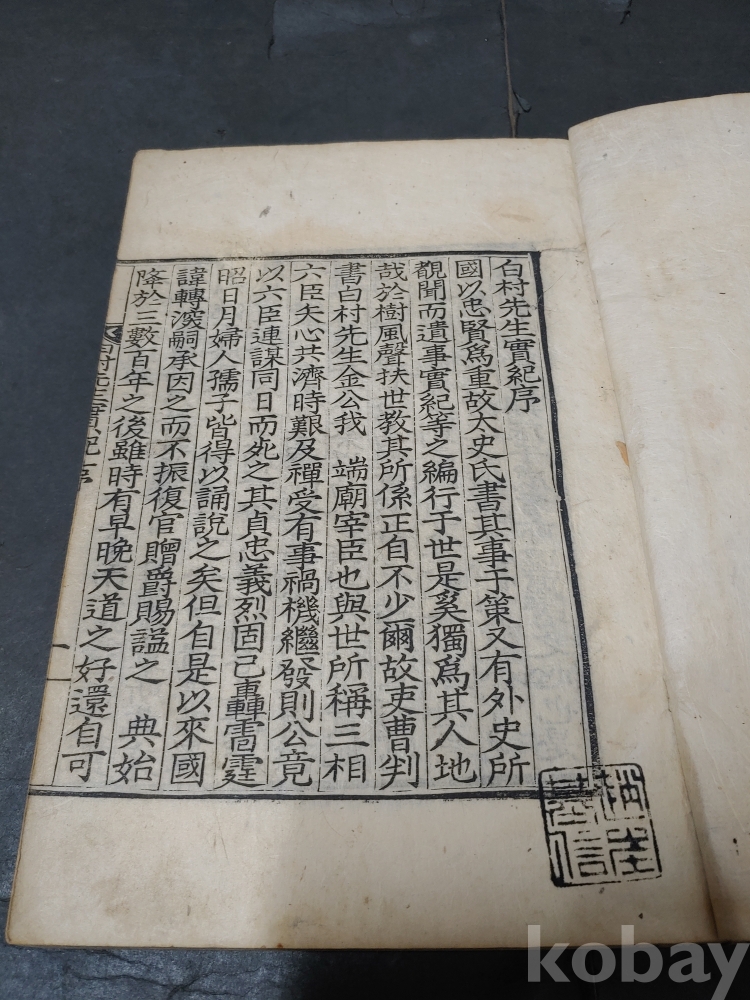 白村先生實紀序
國以忠賢爲重故太史氏書其事于策又有外史所
覩聞而遺事實紀等之編行于世是奚獨爲其人地
哉於樹風聲扶世教其所係正自不少爾故吏曹判
書白村先生金公我 端廟宰臣也與世所稱三相
六臣矢心共濟時艱及禪受有事禍機繼發則公竟
以六臣連謀同日而死之其貞忠義烈固已轟雷霆
昭日月婦人孺子皆得以誦說之矣但自是以來國
諱轉深嗣承因之而不振復官贈爵賜謚之 典始
降於三數百年之後雖時有早晚天道之好還自可
白村先生實紀 序
一
kobay